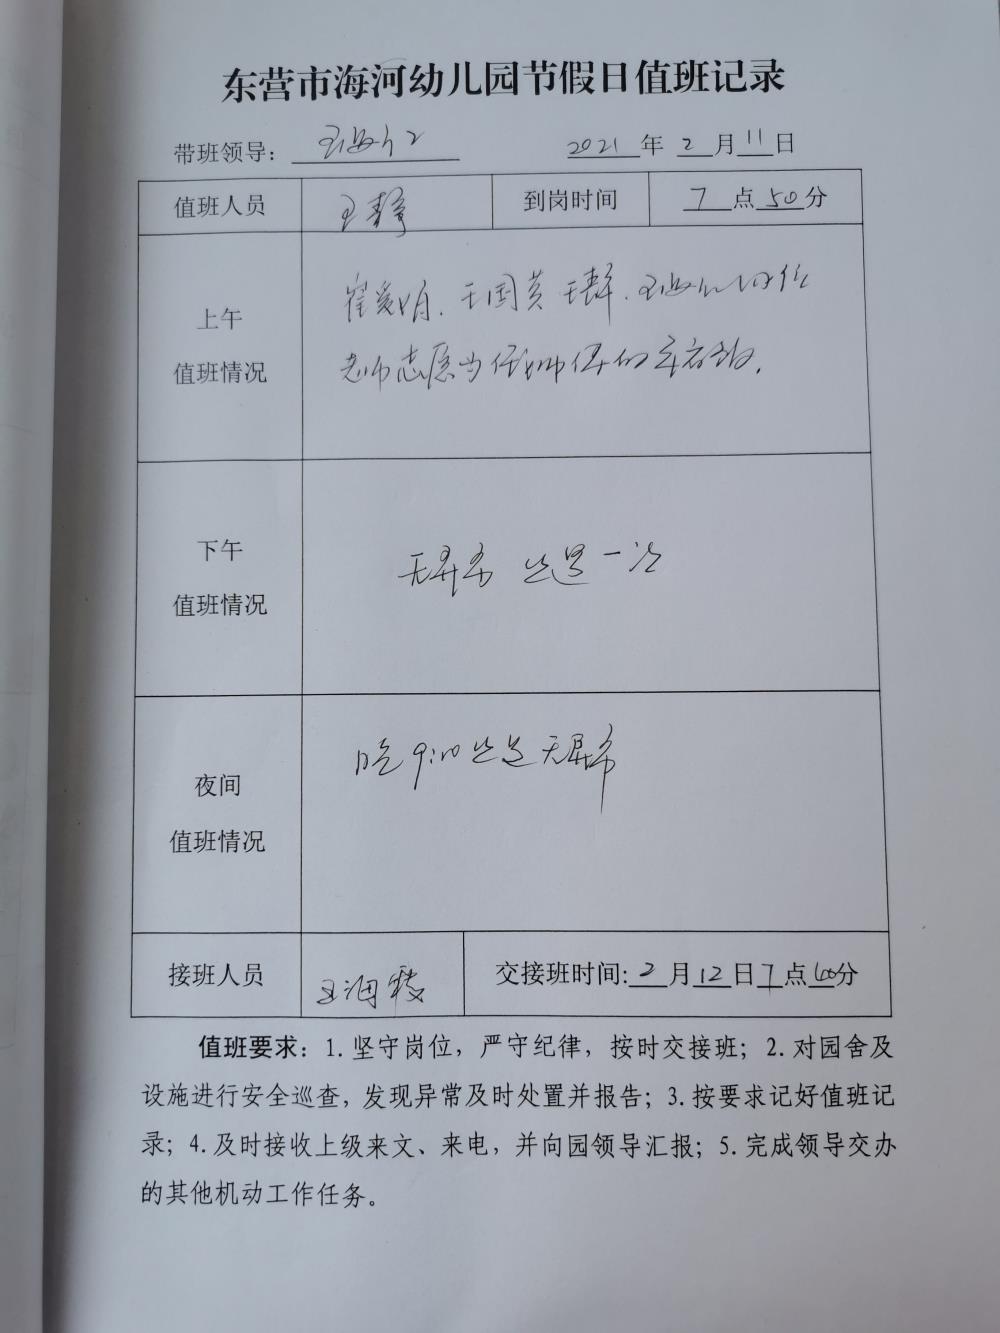 东营市海河幼儿园节假日值班记录
带班领导： 2021 年 2 月 11 日
值班人员 王静 到岗时间 7 点 50 分
上午
值班情况
崔爱娟、王国英 王静、
老师志愿当
下午
值班情况
无异常 巡逻一次
夜间
值班情况
晚9:10 巡逻无异常
接班人员 王海霞 交接班时间: 2 月 12 日 7 点 分
值班要求：1. 坚守岗位，严守纪律，按时交接班；2. 对园舍及
设施进行安全巡查，发现异常及时处置并报告；3. 按要求记好值班记
录；4. 及时接收上级来文、来电，并向园领导汇报；5. 完成领导交办
的其他机动工作任务。